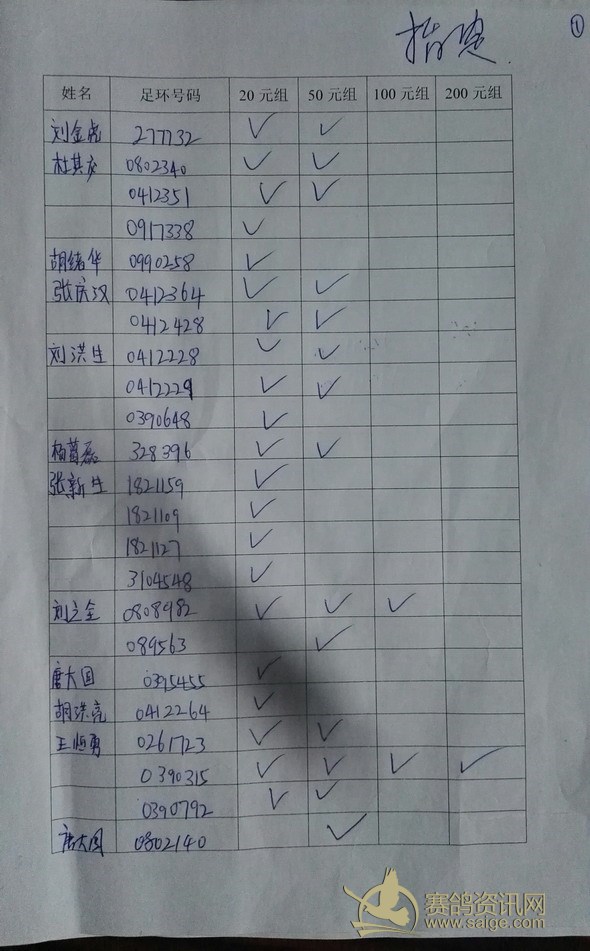 指定
①
姓名 足环号码 20 元组 50 元组 100 元组 200 元组
刘金虎 277132 ✓ ✓
杜其方 0802340 ✓ ✓
0412351 ✓ ✓
0917338 ✓
胡绪华 0990258 ✓
张庆汉 0412364 ✓ ✓
0412428 ✓ ✓
刘洪生 0412228 ✓ ✓
0412229 ✓ ✓
0390648 ✓
杨菖磊 328396 ✓ ✓
张新生 1821159 ✓
1821109 ✓
1821127 ✓
3104548 ✓
刘立全 0808982 ✓ ✓ ✓
089563 ✓
唐大国 0395455 ✓
胡洪亮 0412264 ✓
王恒勇 0261723 ✓ ✓
0390315 ✓ ✓ ✓ ✓
0390792 ✓ ✓
唐大国 0802140 ✓
赛鸽资讯网
www.saige.com